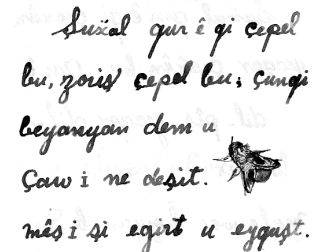 Şuẍal gur ê gi çepel
bu, zoriş çepel bu; çungi
beyanyan dem u
Çaw i ne deşit.
mêş i şi egirt u eyguşt.